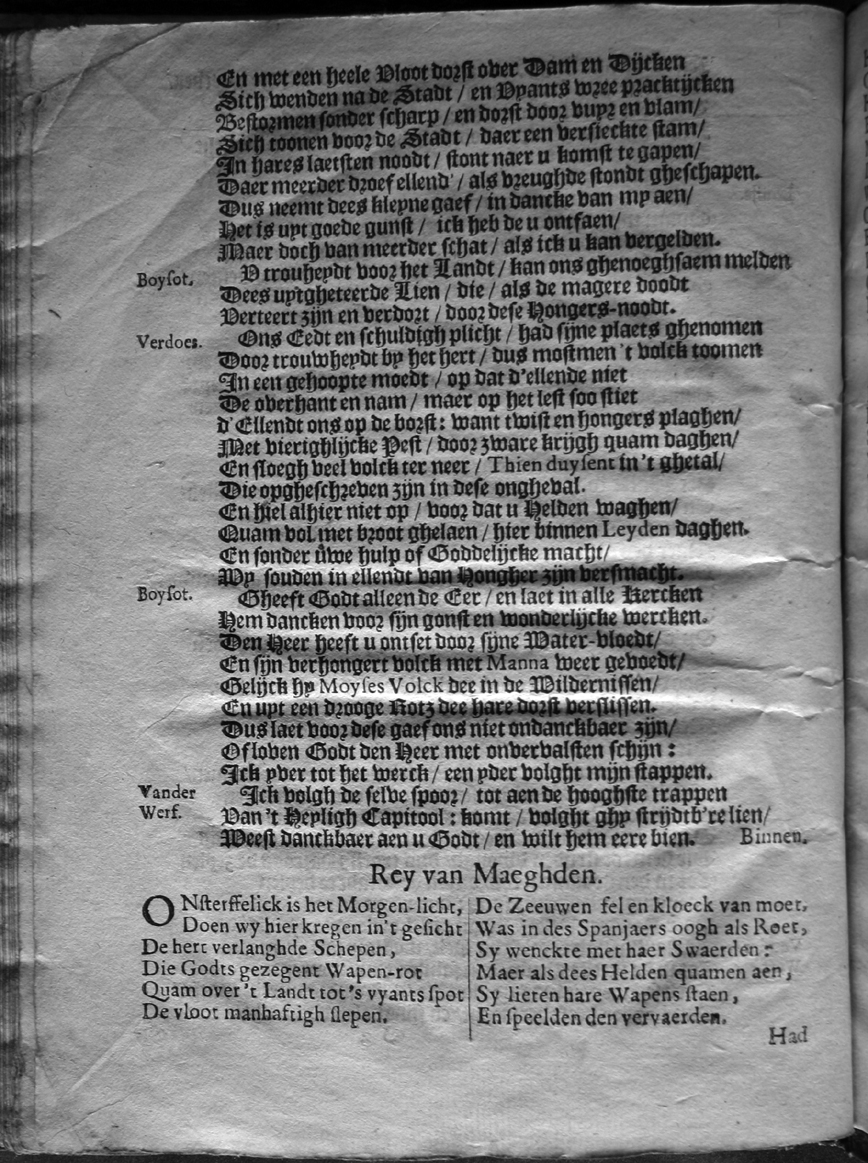 En met een heele Vloot dorst over Dam en Dijcken
Sich wenden na de Stadt / en Vyants wree practijcken
Bestormen sonder scharp / en dorst door vuyr en vlam /
Sich toonen voor de Stadt / daer een versteckte stam /
In hares laetsten noodt / stont naer u komst te gapen /
Daer meerder droef ellend' / als vreughde stondt gheschapen.
Dus neemt dees kleyne gaef / in dancke van my aen /
Het is uyt goede gunst / ick heb de u ontfaen /
Maer doch van meerder schat / als ick u kan vergelden.
Boysot. V trouheydt voor het Landt / kan ons ghenoeghsaem melden
Dees uytgheteerde Lien / die / als de magere doodt
Verteert zijn en verdort / door dese Hongers-noodt.
Verdoes. Ons Eedt en schuldigh plicht / had sijne plaets ghenomen
Door trouwheydt by het hert / dus mostmen 't volck toomen
In een gehoopte moedt / op dat d'ellende niet
De overhant en nam / maer op het lest soo stiet
d'Ellendt ons op de borst: want twist en hongers plaghen /
Met vierighlijcke Pest / door zware krijgh quam daghen /
En sloegh veel volck ter neer / Thien duysent in 't ghetal /
Die opgheschreven zijn in dese ongheval.
En hiel alhier niet op / voor dat u Helden waghen /
Quam vol met broot ghelaen / hier binnen Leyden daghen.
En sonder uwe hulp of Goddelijcke macht /
Wy souden in ellendt van Hongher zijn versmacht.
Boysot. Gheeft Godt alleen de Eer / en laet in alle Kercken
Hem dancken voor sijn gonst en wonderlijcke wercken.
Den Heer heeft u ontset door sijne Water-vloedt /
En sijn verhongert volck met Manna weer gevoedt /
Gelijck hy Moyses Volck dee in de Wildernissen /
En uyt een drooge Rotz dee hare dorst verslissen.
Dus laet voor dese gaef ons niet ondanckbaer zijn /
Of loven Godt den Heer met onvervalsten schijn:
Ick yver tot het werck / een yder volght mijn stappen.
Vander Ick volgh de selve spoor / tot aen de hooghste trappen
Werf. Van 't Heyligh Capitool: komt / volght ghy strijdtb're lien /
Weest danckbaer aen u Godt / en wilt hem eere bien. Binnen.
Rey van Maeghden.
ONsterffelick is het Morgen-licht,
Doen wy hier kregen in't gesicht
De hert verlanghde Schepen,
Die Godts gezegent Wapen-rot
Quam over 't Landt tot 's vyants spot
De vloot manhaftigh slepen.
De Zeeuwen fel en kloeck van moet,
Was in des Spanjaers oogh als Roet,
Sy wenckte met haer Swaerden:
Maer als dees Helden quamen aen,
Sy lieten hare Wapens staen,
En speelden den vervaerden.
Had